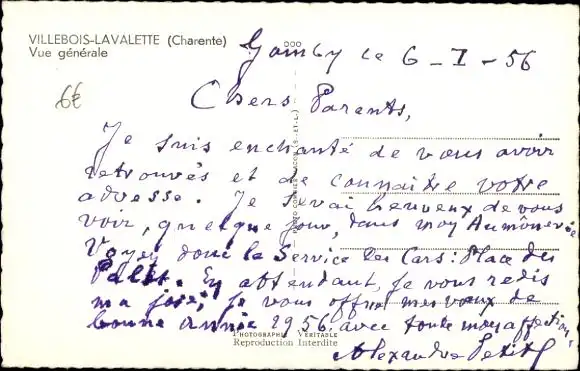 VILLEBOIS-LAVALETTE (Charente)
Vue générale
le 6 - I - 56
6€
Chers Parents,
Je suis enchanté de vous avoir
retrouvés et de connaitre votre
adresse. Je serai heureux de vous
voir, quelque jour, dans mon Aumônerie
Voyez donc le Service des Cars: Place du
Palet. En attendant, je vous redis
ma joie; je vous offre mes vœux de
bonne année 1956 avec toute mon affection.
PHOTOGRAPHIE VÉRITABLE
Reproduction Interdite
Alexandre Petit